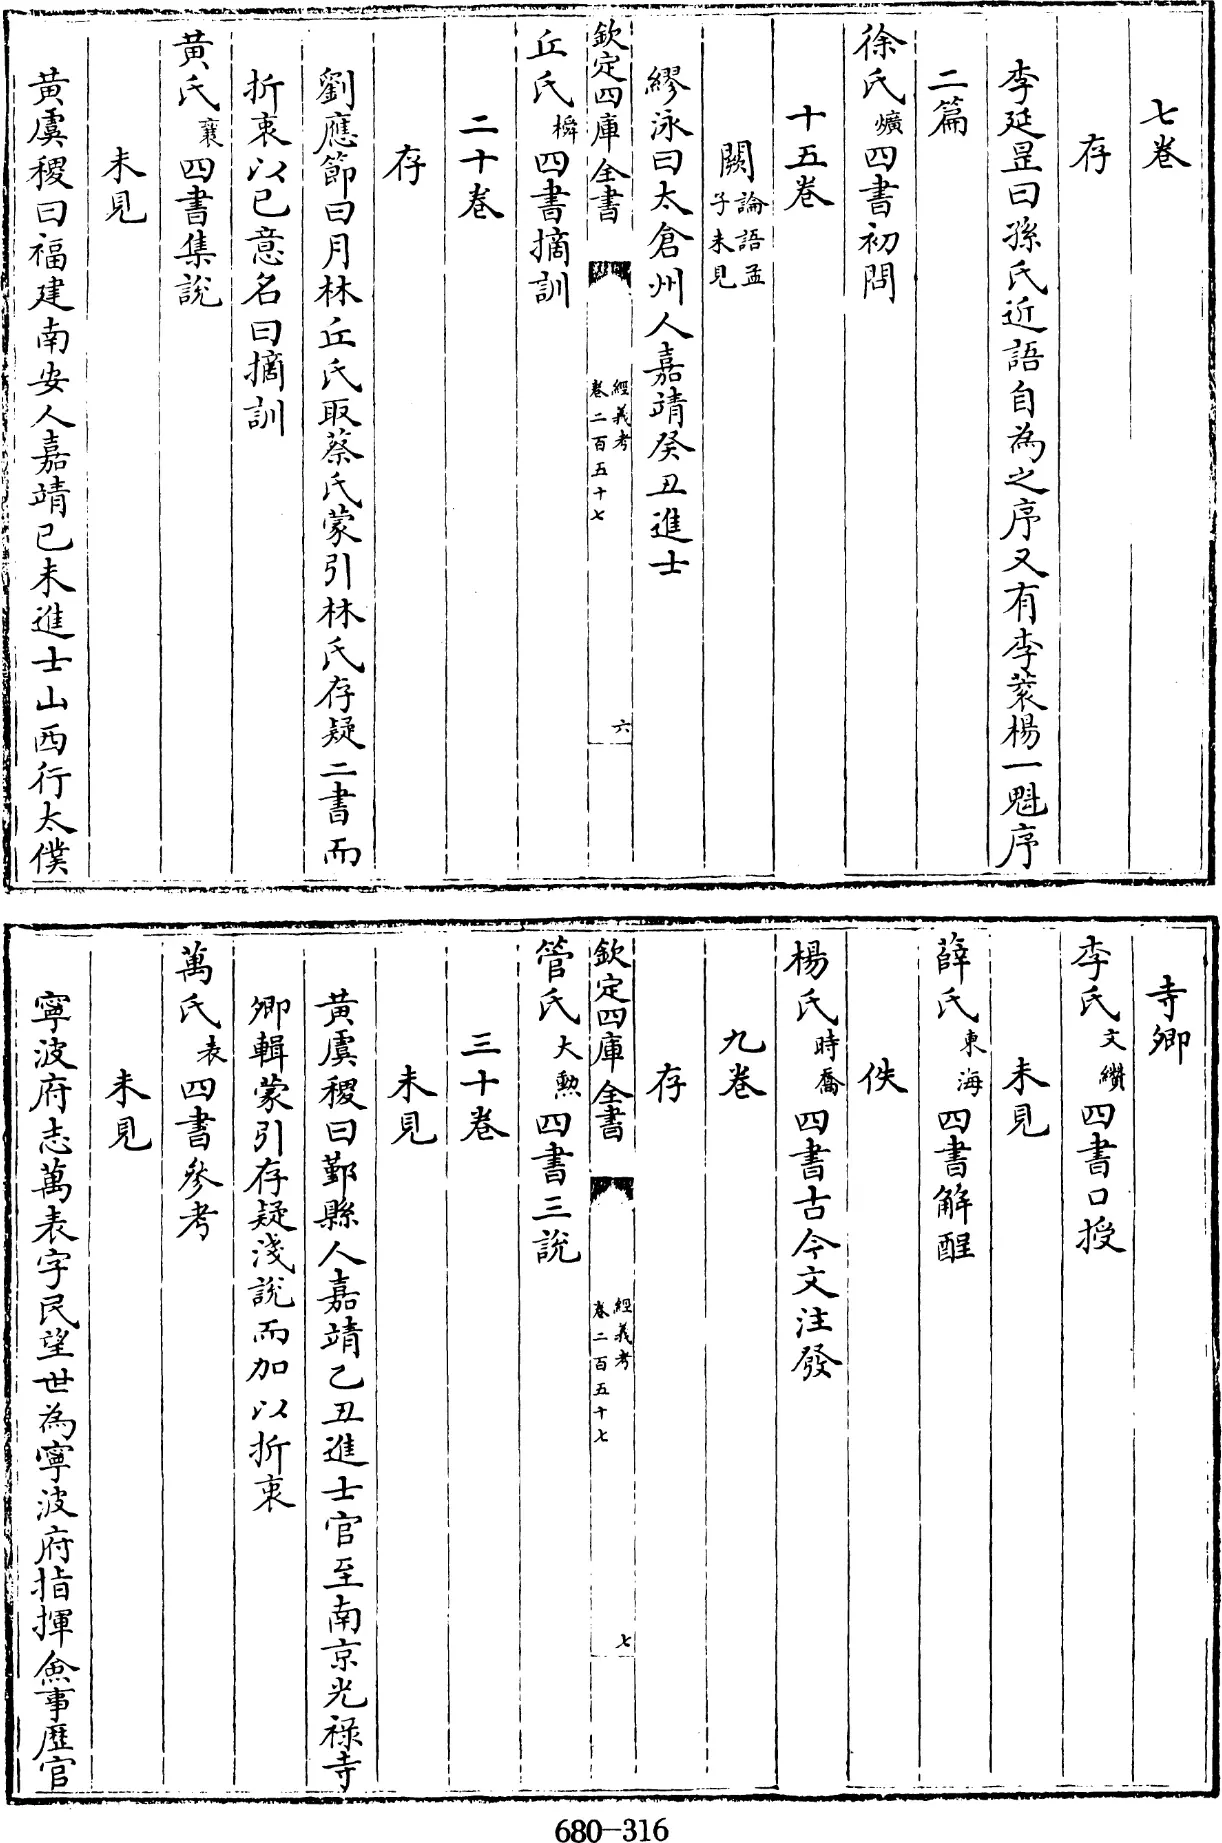 七卷
存
李延昰曰孫氏近語自為之序又有李蓘楊一魁序
二篇
徐氏爌四書初問
十五卷
闕論語孟子未見
繆泳曰太倉州人嘉靖癸丑進士
欽定四庫全書 經義考 卷二百五十七 六
丘氏橓四書摘訓
二十卷
存
劉應節曰月林丘氏取蔡氏蒙引林氏存疑二書而
折衷以已意名曰摘訓
黄氏襄四書集説
未見
黄虞稷曰福建南安人嘉靖已未進士山西行太僕
寺卿
李氏文纘四書口授
未見
薛氏東海四書解醒
佚
楊氏時喬四書古今文注發
九卷
存
欽定四庫全書 經義考 卷二百五十七 七
管氏大勲四書三説
三十卷
未見
黄虞稷曰鄞縣人嘉靖乙丑進士官至南京光禄寺
卿輯蒙引存疑淺説而加以折衷
萬氏表四書參考
未見
寧波府志萬表字民望世為寧波府指揮僉事歴官
680-316